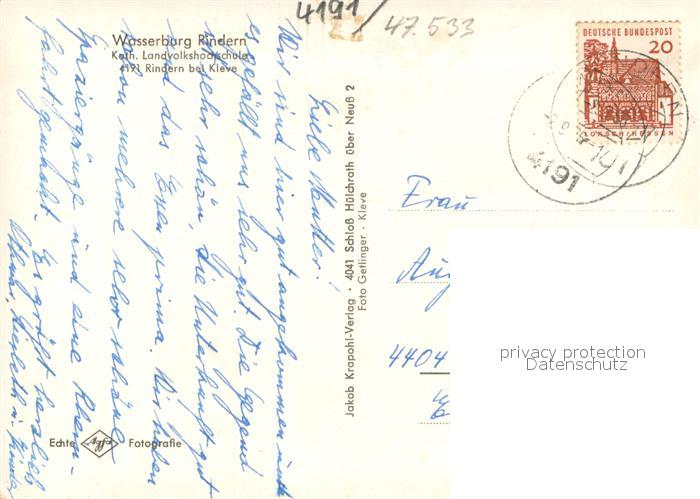 4191/
47.533
Wasserburg Rindern
Kath. Landvolkshochschule
4191 Rindern bei Kleve
DEUTSCHE BUNDESPOST
20
LORSCH/HESSEN
4191
Liebe Mutter!
Wir sind hier gut angekommen und
es gefällt uns sehr gut. Die Gegend
ist sehr schön, die Unterkunft gut
und das Essen prima. Wir haben
schon mehrere sehr schöne
Spaziergänge und eine Rhein-
fahrt gemacht. Es grüßt herzlich
Jakob Krapohl-Verlag · 4041 Schloß Hülchrath über Neuß 2
Foto Getlinger · Kleve
Frau
4404
privacy protection
Datenschutz
Echte Agfa Fotografie